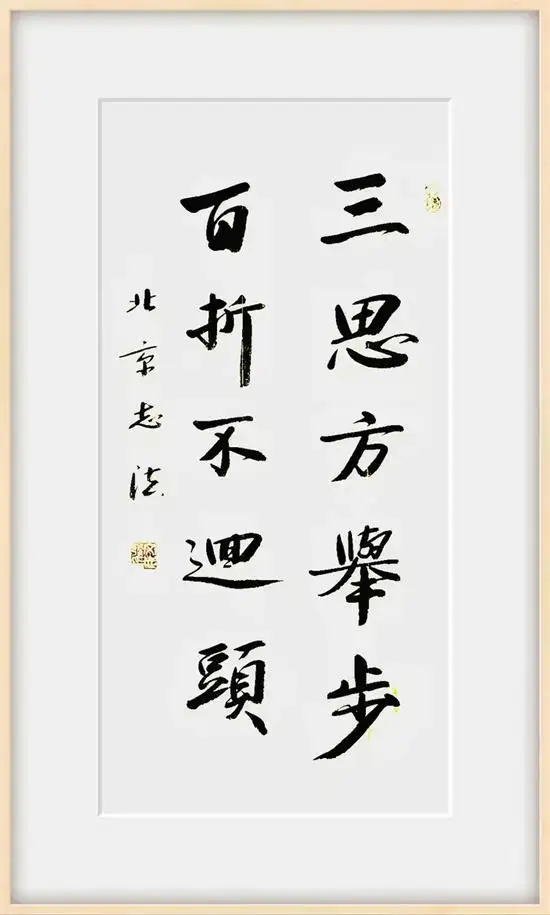 三思方舉步
百折不迴頭
北京志